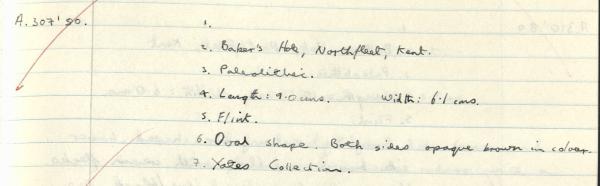 A.307'90. 1.
2. Baker's Hole, Northfleet, Kent.
3. Paleolithic.
4. Length: 9.0 cms. Width: 6.1 cms.
5. Flint.
6. Oval shape. Both sides opaque brown in colour.
7. Yates Collection.